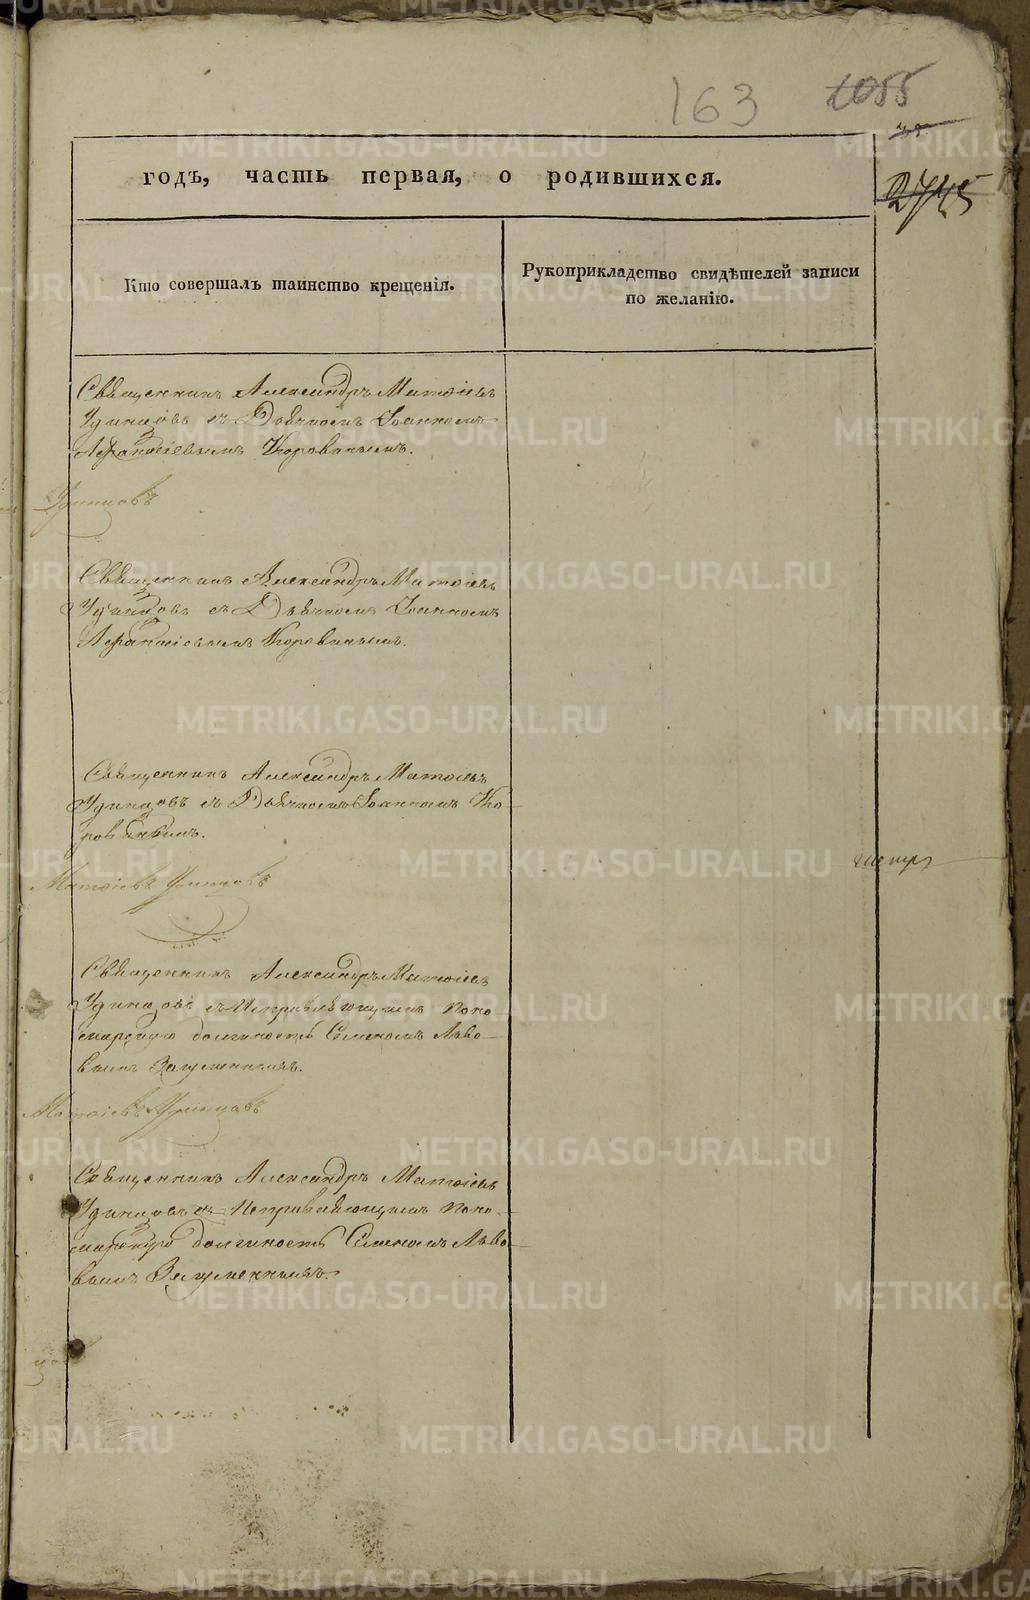 163 1055
2745
годъ, часть первая, о родившихся.
Кто совершалъ таинство крещенія.
Рукоприкладство свидѣтелей записи
по желанію.
Священникъ Александръ Матѳіевъ
Удинцовъ съ Дьячкомъ Іоанномъ
Аѳанасіевымъ Коровинымъ.
Удинцовъ
Священникъ Александръ Матѳіевъ
Удинцовъ съ Дьячкомъ Іоанномъ
Аѳанасіевымъ Коровинымъ.
Священникъ Александръ Матѳіевъ
Удинцовъ съ Дьячкомъ Іоанномъ Ко-
ровинымъ.
Матѳіевъ Удинцовъ
Священникъ Александръ Матѳіевъ
Удинцовъ съ Исправляющимъ Поно-
марскую должность Семеномъ Льво-
вымъ
Матѳіевъ Удинцовъ
Священникъ Александръ Матѳіевъ
Удинцовъ съ Исправляющимъ Поно-
марскую должность Семеномъ Льво-
вымъ
METRIKI.GASO-URAL.RU